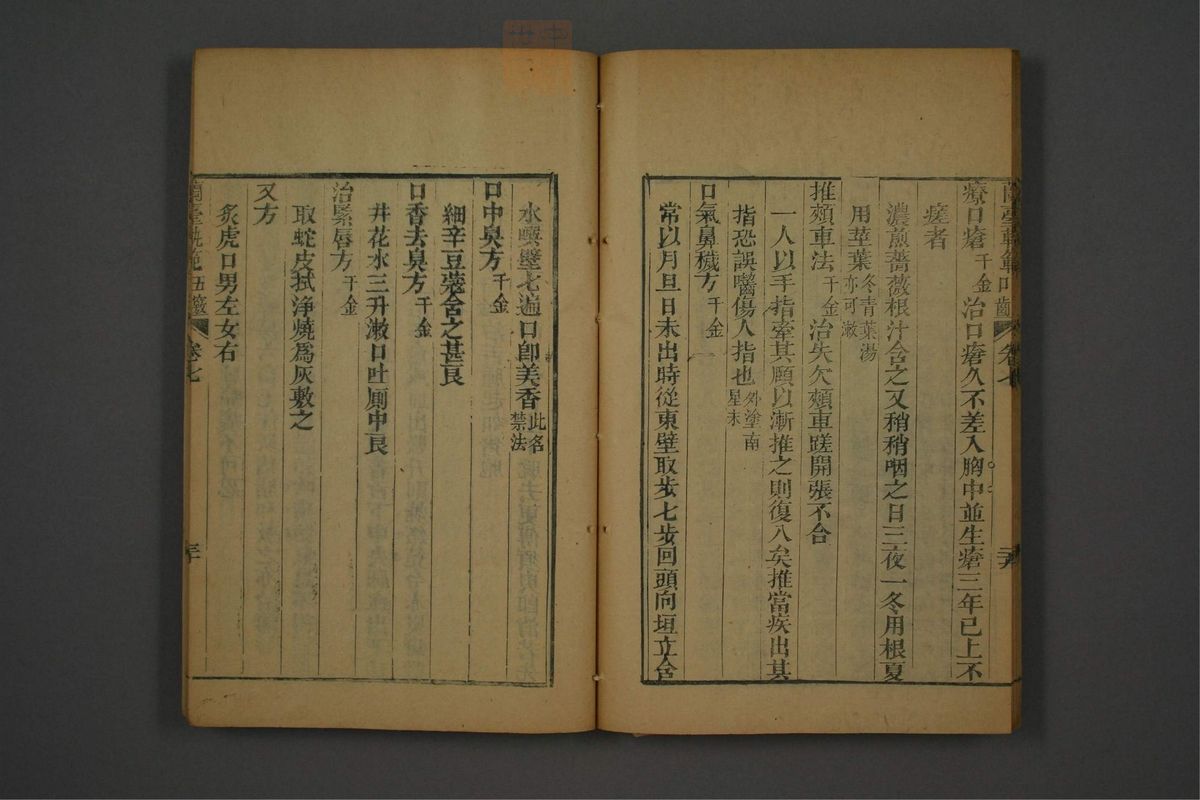 蘭臺軌範口齒 卷七
療口瘡千金 治口瘡久不差入胸中並生瘡三年已上不
瘥者
濃煎薔薇根汁含之又稍稍咽之日三夜一冬用根夏
用莖葉冬青葉湯亦可漱
推頰車法千金 治失欠頰車蹉開張不合
一人以手指牽其頤以漸推之則復入矣推當疾出其
指恐誤嚙傷人指也外塗南星末
口氣鼻穢方千金
常以月旦日未出時從東壁取步七步回頭向垣立含
水噀壁七遍口卽美香此名禁法
口中臭方千金
細辛豆蔻含之甚良
口香去臭方千金
井花水三升漱口吐厠中良
治緊唇方千金
取蛇皮拭浄燒爲灰敷之
又方
炙虎口男左女右
蘭臺軌范 卷七 三十